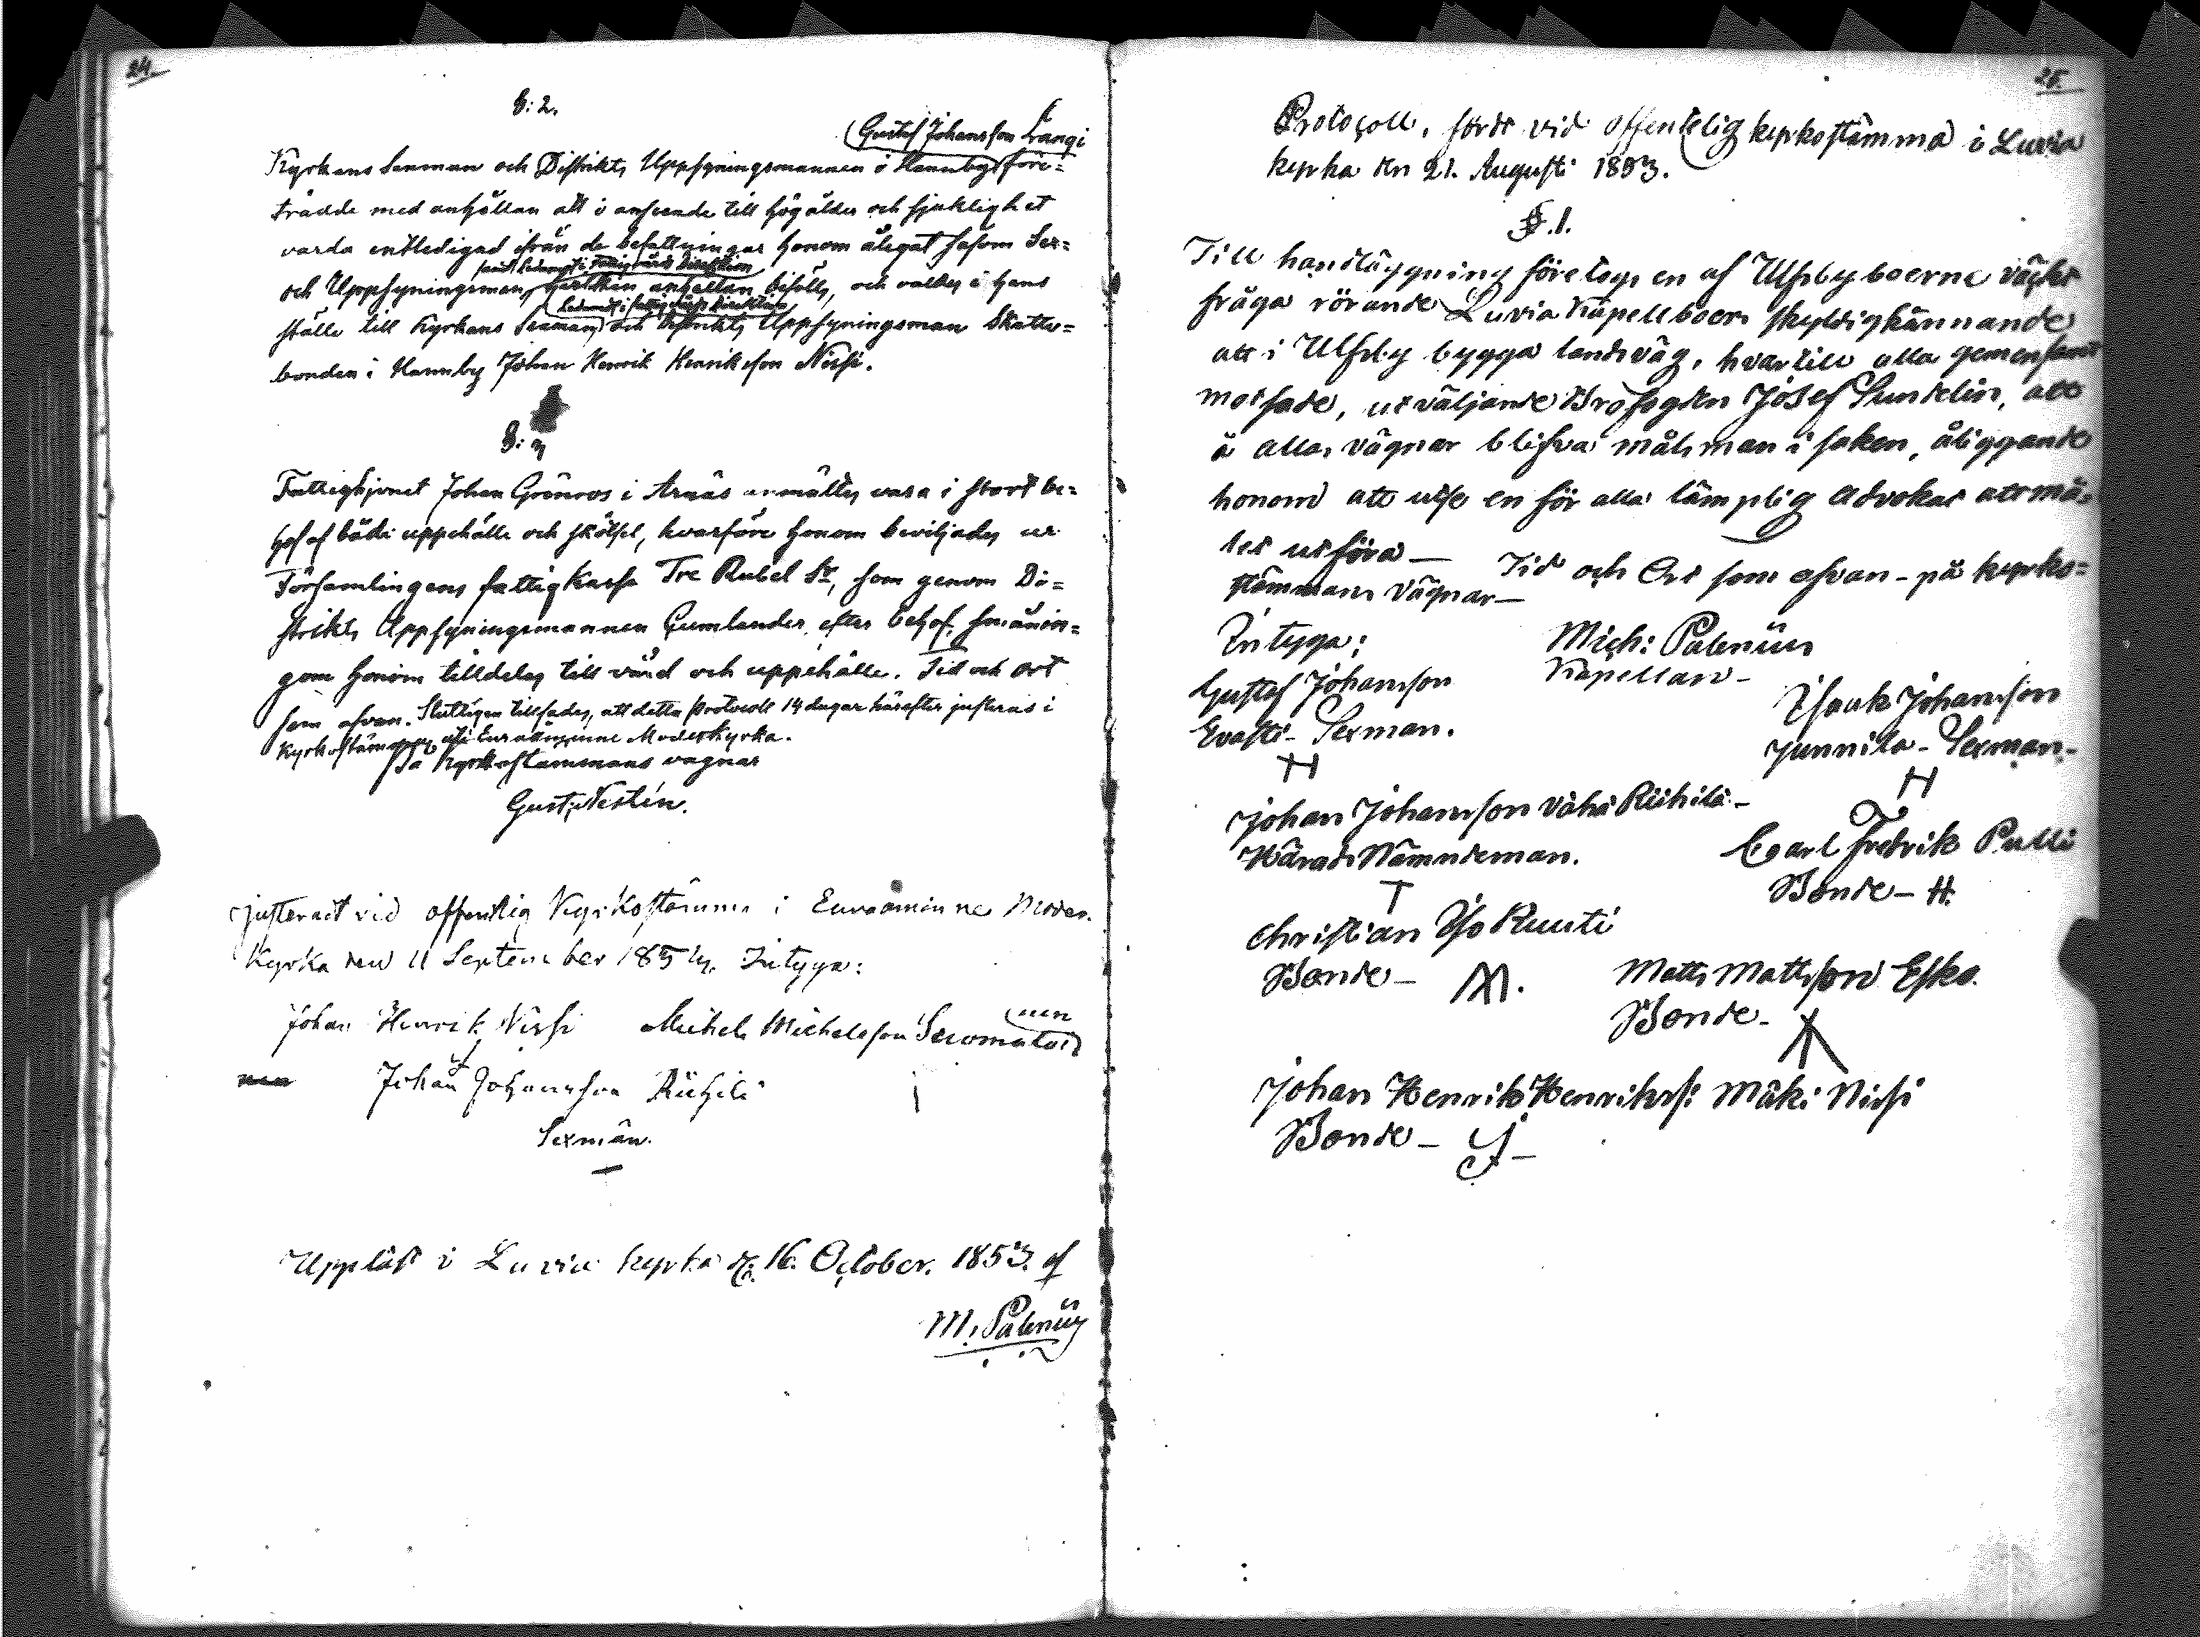 24.
§: 2.
Gustaf Johansson Långi
Kyrkans Sexman och Distrikts Uppsyningsmannen i Hannby före-
trädde med anhållan att i anseende till hög ålder och sjuklighet
varda entledigad ifrån de befattningar honom ålegat såsom Sex-
samt Ledamot i Fattigvårds Direktion
och Uppsyningsman, hvilken anhållan bifölls, och valdes i hans
Ledamot i fattigvårds Direktion
ställe till Kyrkans Sexman och Distrikts Uppsyningsman Skatte-
bonden i Hannby Johan Henrik Henriksson Nissi.
§: 3
Fattighjonet Johan Grönroos i Arnäs anmältes vara i stort be-
hof af både uppehälle och skötsel, hvarföre honom beviljades ur
Församlingens fattigkassa Tre Rubel Sr, som genom Di-
strikts Uppsyningsmannen Gumlander, efter behof, smånin-
gom honom tilldelas till vård och uppehälle. Tid och ort
som ofvan. Slutligen tillsades, att detta Protocoll 14 dagar härefter justeras i
Kyrkostämma uti Euraåminne Moderkyrka.
På Kyrkostämmans vägnar
Gust. Nestin.
Justeradt vid offentlig Kyrkostämma i Euraåminne Moder-
Kyrka den 11 September 1853. Intyga:
Johan Henrik Nissi Michel Michelsson Sexomatoi
nen
Johan Johansson Riihilä
Sexmän.
Uppläst i Luvia kyrka d. 16. October. 1853. af
M. Palenius
25.
Protocoll, fördt vid offentelig kyrkostämma i Luvia
kyrka den 21. Augusti 1853.
§. 1.
Till handläggning företogs en af Ulfsbyboerne väckt
fråga rörande Luvia Kapellboers skyldigkännande
att i Ulfsby bygga landsväg, hvartill alla gemensamt
motsade, utväljande Brofogden Josef Sundelin, att
å allas vägnar blifva målsman i saken, åliggande
honom att utse en för alla lämplig Advokat att må-
let utföra — Tid och Ort som ofvan - på kyrko-
stämmans vägnar —
Intyga; Mich: Palenius
Kapellan -
Gustaf Johansson
Evasti - Sexman.
Isaak Johansson
Junnila - Sexman -
Johan Johansson Vähä Riihilä -
Härads Nämndeman.
Carl Fredrik Pulli
Bonde - H.
Christian Iso Ruuti
Bonde -
Matts Mattsson Esko.
Bonde -
Johan Henrik Henrikss: Mäki Nissi
Bonde -